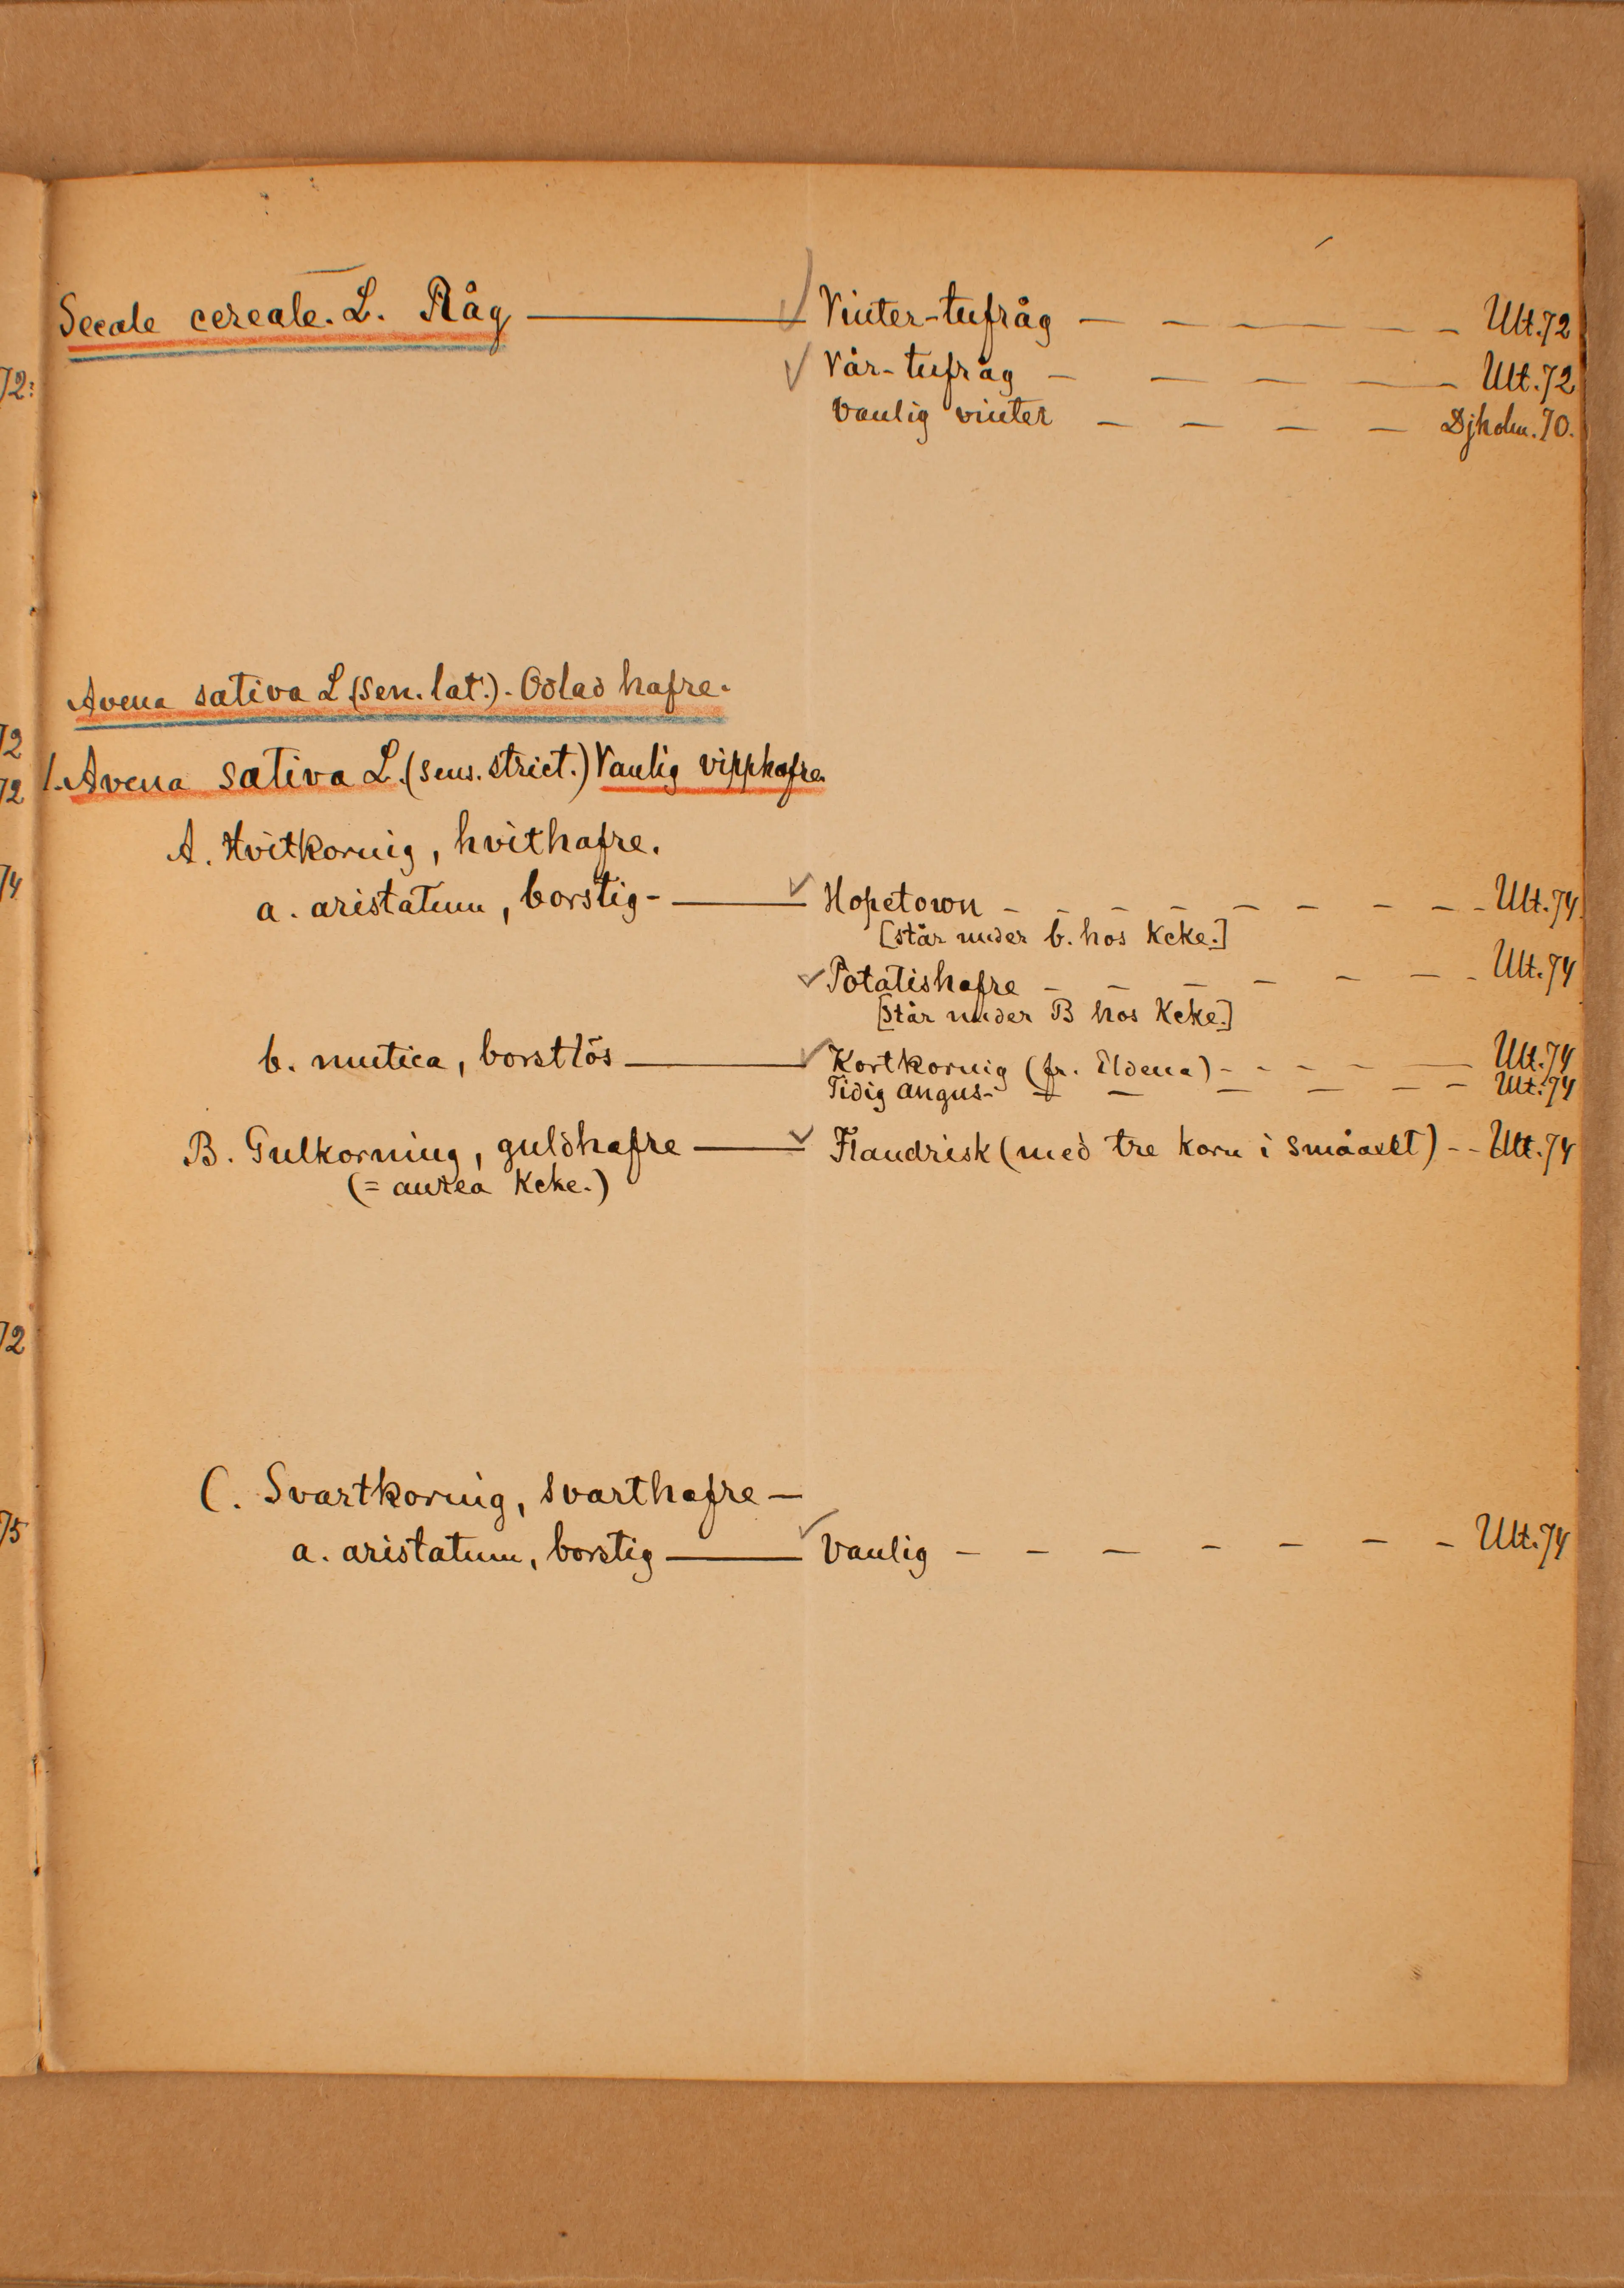 Secale cereale. L. Råg ——— Vinter-tufråg — — — — — — Ult. 72
Vår-tufråg — — — — — Ult. 72
Vanlig vinter — — — — Djholm. 70.
72:
Avena sativa L (sen. lat.). Odlad hafre.
72
1. Avena sativa L. (sens. strict.) Vanlig vipphafre.
72
A. Hvitkornig, hvithafre.
74
a. aristatum, borstig - ——— Hopetown - - - - - - - - - Ult. 74
[står under b. hos Kcke.]
Potatishafre - - - - - - - Ult. 74
[står under B hos Kcke.]
b. mutica, borstlös ——— Kortkornig (fr. Eldena) - - - - - — Ult. 74
Tidig Angus - — — — — — — Ult. 74
B. Gulkorning, guldhafre ——— Flandrisk (med tre korn i småaxet) - - Ult. 74
(= aurea Kcke.)
72
C. Svartkornig, svarthafre —
75
a. aristatum, borstig ——— Vanlig - - - - - - - Ult. 74